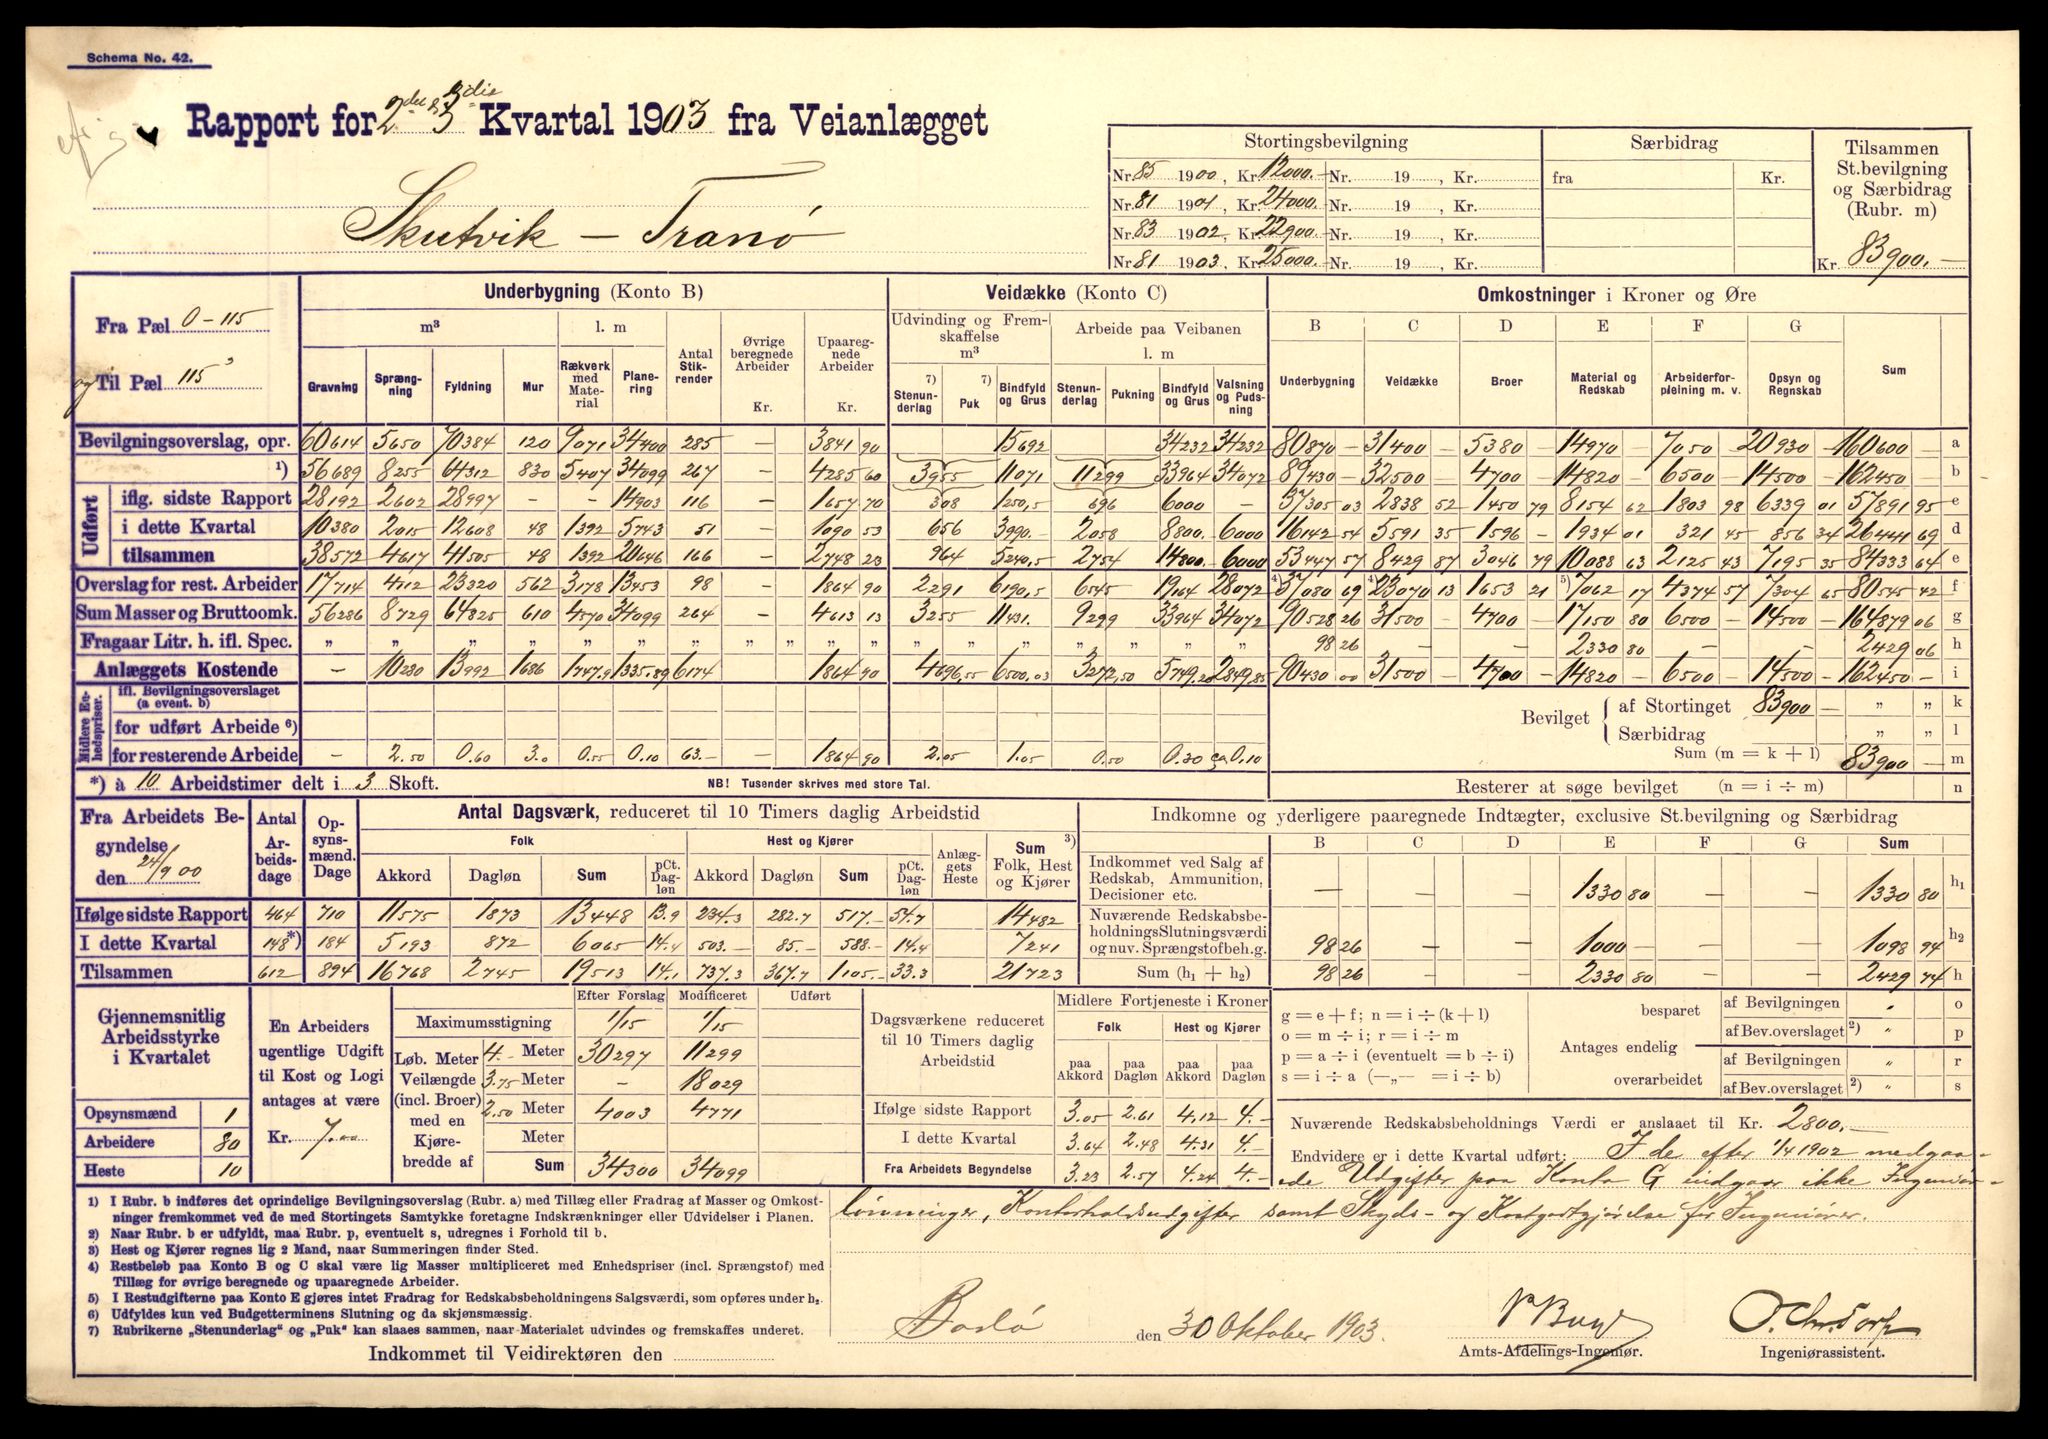 Schema No. 42.
Rapport for 2den & 3die Kvartal 1903 fra Veianlægget
Skutvik – Tranø
Stortingsbevilgning Særbidrag Tilsammen St.bevilgning og Særbidrag (Rubr. m)
Nr. 85 1900, Kr. 12000.- Nr. 19 , Kr. fra Kr.
Nr. 81 1901 Kr. 24000.- Nr. 19 , Kr.
Nr. 83 1902, Kr. 22900.- Nr. 19 , Kr.
Nr. 81 1903, Kr. 25000.- Nr. 19 , Kr. Kr. 83900.—
Fra Pæl 0-115
og Til Pæl 115
Underbygning (Konto B) Veidække (Konto C) Omkostninger i Kroner og Øre
m³ l. m Antal Stikrender Øvrige beregnede Arbeider Kr. Upaaregnede Arbeider Kr.
Gravning Sprængning Fyldning Mur Rækverk med Materiel Planering
Udvinding og Fremskaffelse m³ Arbeide paa Veibanen l. m
7) Stenunderlag 7) Puk Bindfyld og Grus Stenunderlag Pukning Bindfyld og Grus Valsning og Pudsning
B C D E F G
Underbygning Veidække Broer Material og Redskab Arbeiderforpleining m. v. Opsyn og Regnskab Sum
Bevilgningsoverslag, opr. 60614 5650 70384 120 9071 34400 285 — 3841 90 15692 34232 34232 80870 — 31400 — 5380 — 14970 — 7050 — 20930 — 160600 — a
1) 56689 8255 64312 830 5407 34099 267 — 4285 60 3955 11071 11299 33964 34072 89430 — 32500 — 4700 — 14820 — 6500 — 14500 — 162450 — b
Udført
iflg. sidste Rapport 28192 2602 28997 - - 14903 116 — 1657 70 308 1250,5 696 6000 — 37305 03 2838 52 1450 79 8154 62 1803 98 6339 01 57891 95 c
i dette Kvartal 10380 2015 12608 48 1392 5743 51 — 1090 53 656 3990.- 2058 8800.- 6000 16142 54 5591 35 1596 — 1934 01 321 45 856 34 26441 69 d
tilsammen 38572 4617 41505 48 1392 20646 166 — 2748 23 964 5240,5 2754 14800.- 6000 53447 57 8429 87 3046 79 10088 63 2125 43 7195 35 84333 64 e
Overslag for rest. Arbeider 17714 4112 23320 562 3178 13453 98 — 1864 90 2291 6190,5 6545 19164 28072 4) 37080 69 4) 23070 13 1653 21 5) 7062 17 4374 57 7304 65 80545 42 f
Sum Masser og Bruttoomk. 56286 8729 64825 610 4570 34099 264 — 4613 13 3255 11431. 9299 33964 34072 90528 26 31500 — 4700 — 17150 80 6500 — 14500 — 164879 06 g
Fragaar Litr. h. ifl. Spec. „ „ „ „ „ „ „ „ „ „ „ „ „ „ „ „ „ 98 26 2330 80 2429 06 h
Anlæggets Kostende — 10230 13992 1686 1747.9 1335.89 6174 1864 90 4696,55 6500,03 3272,50 5749.20 2849.85 90430 00 31500 — 4700 — 14820 — 6500 — 14500 — 162450 — i
Midlere Enhedspriser:
ifl. Bevilgningsoverslaget (a event. b)
for udført Arbeide 6)
for resterende Arbeide — 2.50 0.60 3.0 0.55 0.10 63.- — 1864 90 2.05 1.05 0.50 0.30 ca 0.10
Bevilget { af Stortinget 83900 — „ „ k
Særbidrag „ „ l
Sum (m = k + l) 83900 — m
*) à 10 Arbeidstimer delt i 3 Skoft. NB! Tusender skrives med store Tal. Resterer at søge bevilget (n = i ÷ m) n
Fra Arbeidets Begyndelse den 24/9 00
Antal Arbeidsdage Opsynsmænd. Dage
Antal Dagsværk, reduceret til 10 Timers daglig Arbeidstid
Folk Hest og Kjører Anlæggets Heste Sum 3) Folk, Hest og Kjører
Akkord Dagløn Sum pCt. Dagløn Akkord Dagløn Sum pCt. Dagløn
Ifølge sidste Rapport 464 710 11575 1873 13448 13.9 234.3 282.7 517.- 54.7 14482
I dette Kvartal 148*) 184 5193 872 6065 14.4 503.- 85.- 588.- 14.4 7241
Tilsammen 612 894 16768 2745 19513 14.1 737.3 367.7 1105.- 33.3 21723
Indkomne og yderligere paaregnede Indtægter, exclusive St.bevilgning og Særbidrag
B C D E F G Sum
Indkommet ved Salg af Redskab, Ammunition, Decisioner etc. — — — 1330 80 — — 1330 80 h₁
Nuværende Redskabsbeholdnings Slutningsværdi og nuv. Sprængstofbeh.g. 98 26 — — 1000 - — — 1098 94 h₂
Sum (h₁ + h₂) 98 26 — — 2330 80 — — 2429 74 h
Gjennemsnitlig Arbeidsstyrke i Kvartalet
Opsynsmænd 1
Arbeidere 80
Heste 10
En Arbeiders ugentlige Udgift til Kost og Logi antages at være
Kr. 7.00
Efter Forslag Modificeret Udført
Maximumsstigning 1/15 1/15
Løb. Meter Veilængde (incl. Broer) med en Kjørebredde af
4.- Meter 30297 11299
3.75 Meter — 18029
2.50 Meter 4003 4771
Meter
Sum 34300 34099
Dagsværkene reduceret til 10 Timers daglig Arbeidstid
Midlere Fortjeneste i Kroner
Folk Hest og Kjører
paa Akkord paa Dagløn paa Akkord paa Dagløn
Ifølge sidste Rapport 3.05 2.61 4.12 4.-
I dette Kvartal 3.64 2.48 4.31 4.-
Fra Arbeidets Begyndelse 3.23 2.57 4.24 4.-
g = e + f; n = i ÷ (k + l)
o = m ÷ i; r = i ÷ m
p = a ÷ i (eventuelt = b ÷ i)
s = i ÷ a (—„— = i ÷ b)
Antages endelig
besparet af Bevilgningen „ o
af Bev.overslaget 2) „ p
overarbeidet af Bevilgningen „ r
af Bev.overslaget 2) „ s
Nuværende Redskabsbeholdnings Værdi er anslaaet til Kr. 2800.—
Endvidere er i dette Kvartal udført: I de efter 1/4 1902 medgaa-
ede Udgifter paa Konto G indgaar ikke Ingeniør-
lønninger, Kontorholdsudgifter samt Skyds- og Kostgodtgjørelse for Ingeniører.
1) I Rubr. b indføres det oprindelige Bevilgningsoverslag (Rubr. a) med Tillæg eller Fradrag af Masser og Omkost-
ninger fremkommet ved de med Stortingets Samtykke foretagne Indskrænkninger eller Udvidelser i Planen.
2) Naar Rubr. b er udfyldt, maa Rubr. p, eventuelt s, udregnes i Forhold til b.
3) Hest og Kjører regnes lig 2 Mand, naar Summeringen finder Sted.
4) Restbeløb paa Konto B og C skal være lig Masser multipliceret med Enhedspriser (incl. Sprængstof) med
Tillæg for øvrige beregnede og upaaregnede Arbeider.
5) I Restudgifterne paa Konto E gjøres intet Fradrag for Redskabsbeholdningens Salgsværdi, som opføres under h₂.
6) Udfyldes kun ved Budgetterminens Slutning og da skjønsmæssig.
7) Rubrikerne „Stenunderlag“ og „Puk“ kan slaaes sammen, naar Materialet udvindes og fremskaffes underet.
Indkommet til Veidirektøren den
Bodø den 30 Oktober 1903.
Amts-Afdelings-Ingeniør.
O. Chr. Torp
Ingeniørassistent.